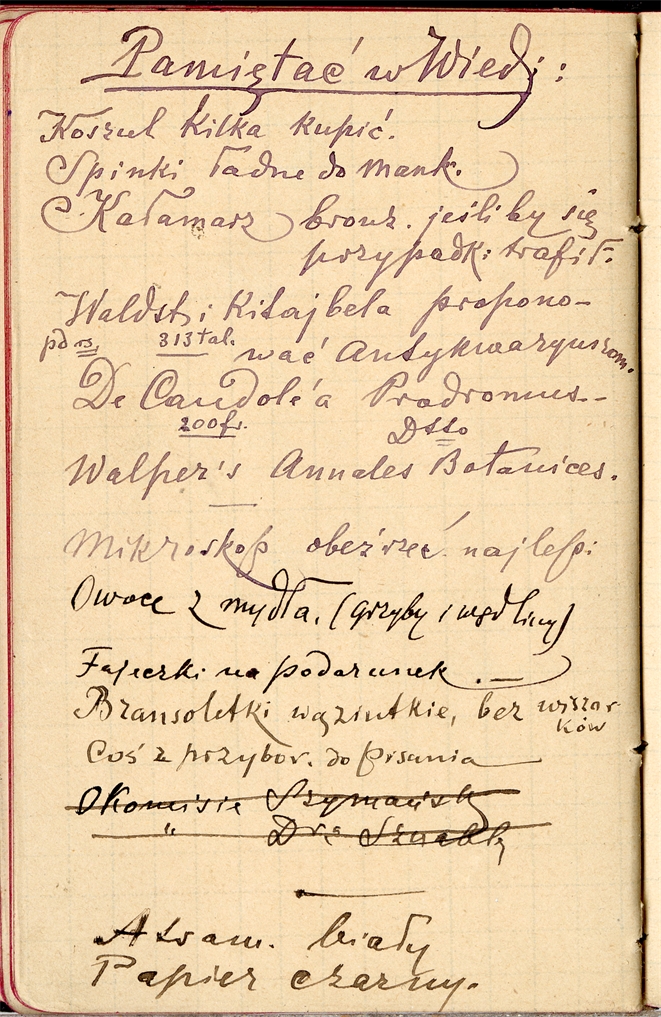 Pamiętać w Wiedj:
Koszul kilka kupić.
Spinki ładne do mank.
Kałamarz bronz. jeśli by się
przypadk: trafił.
Waldst. i Kitajbela propono-
313 tal. wać Antykwaryuszom.
De Candole'a Prodromus.-
200fr. Dtto
Walper's Annales Botanices.
Mikroskop obeźrzeć najlepi
Owoce z mydła. (grzyby i wędliny)
Fajeczki na podarunek.
Bransoletki wąziutkie, bez wiszor-
ków
Coś z przybor. do pisania
O komisie Szymański
" Dra
Atram. biały
Papier czarny.